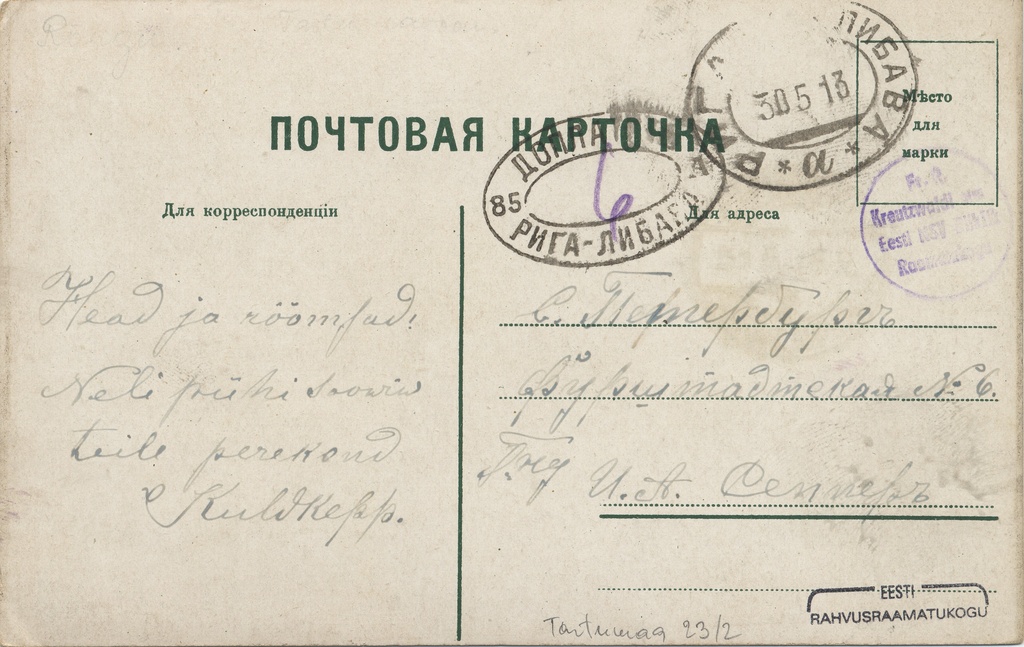 ПОЧТОВАЯ КАРТОЧКА
ЛИБАВА
30 5 13
* а *
Мѣсто
для
марки
85
РИГА-ЛИБАВА
6
Для корреспонденціи
Для адреса
Fr. R.
Kreutzwaldi nim
Eesti NSV Riiklik
Raamatukogu
Head ja röömsad.
Neli pühi soovin
teile perekond
Kuldkepp.
С. Петербургъ
Фурштадтская № 6.
И. А. Сепперъ
Tartumaa 23/2
EESTI
RAHVUSRAAMATUKOGU